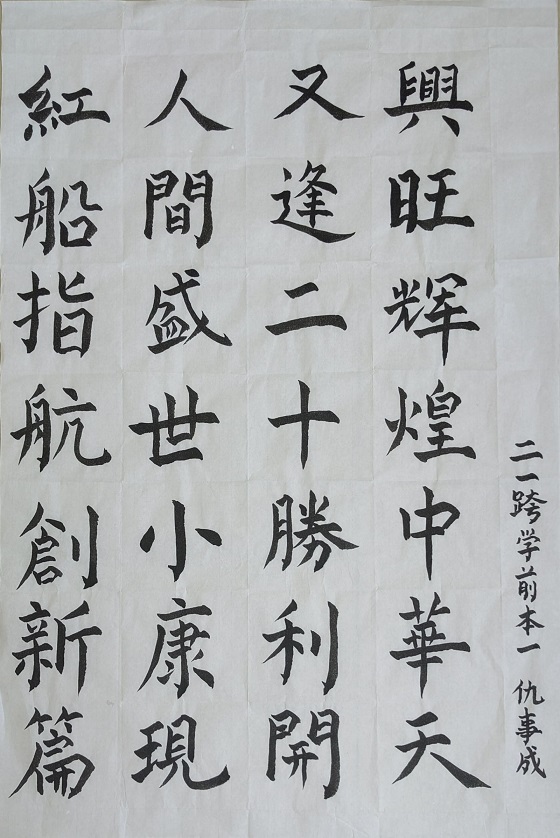 紅船指航創新篇
人間盛世小康現
又逢二十勝利開
興旺辉煌中華天
二一跨学前本一 仇事成